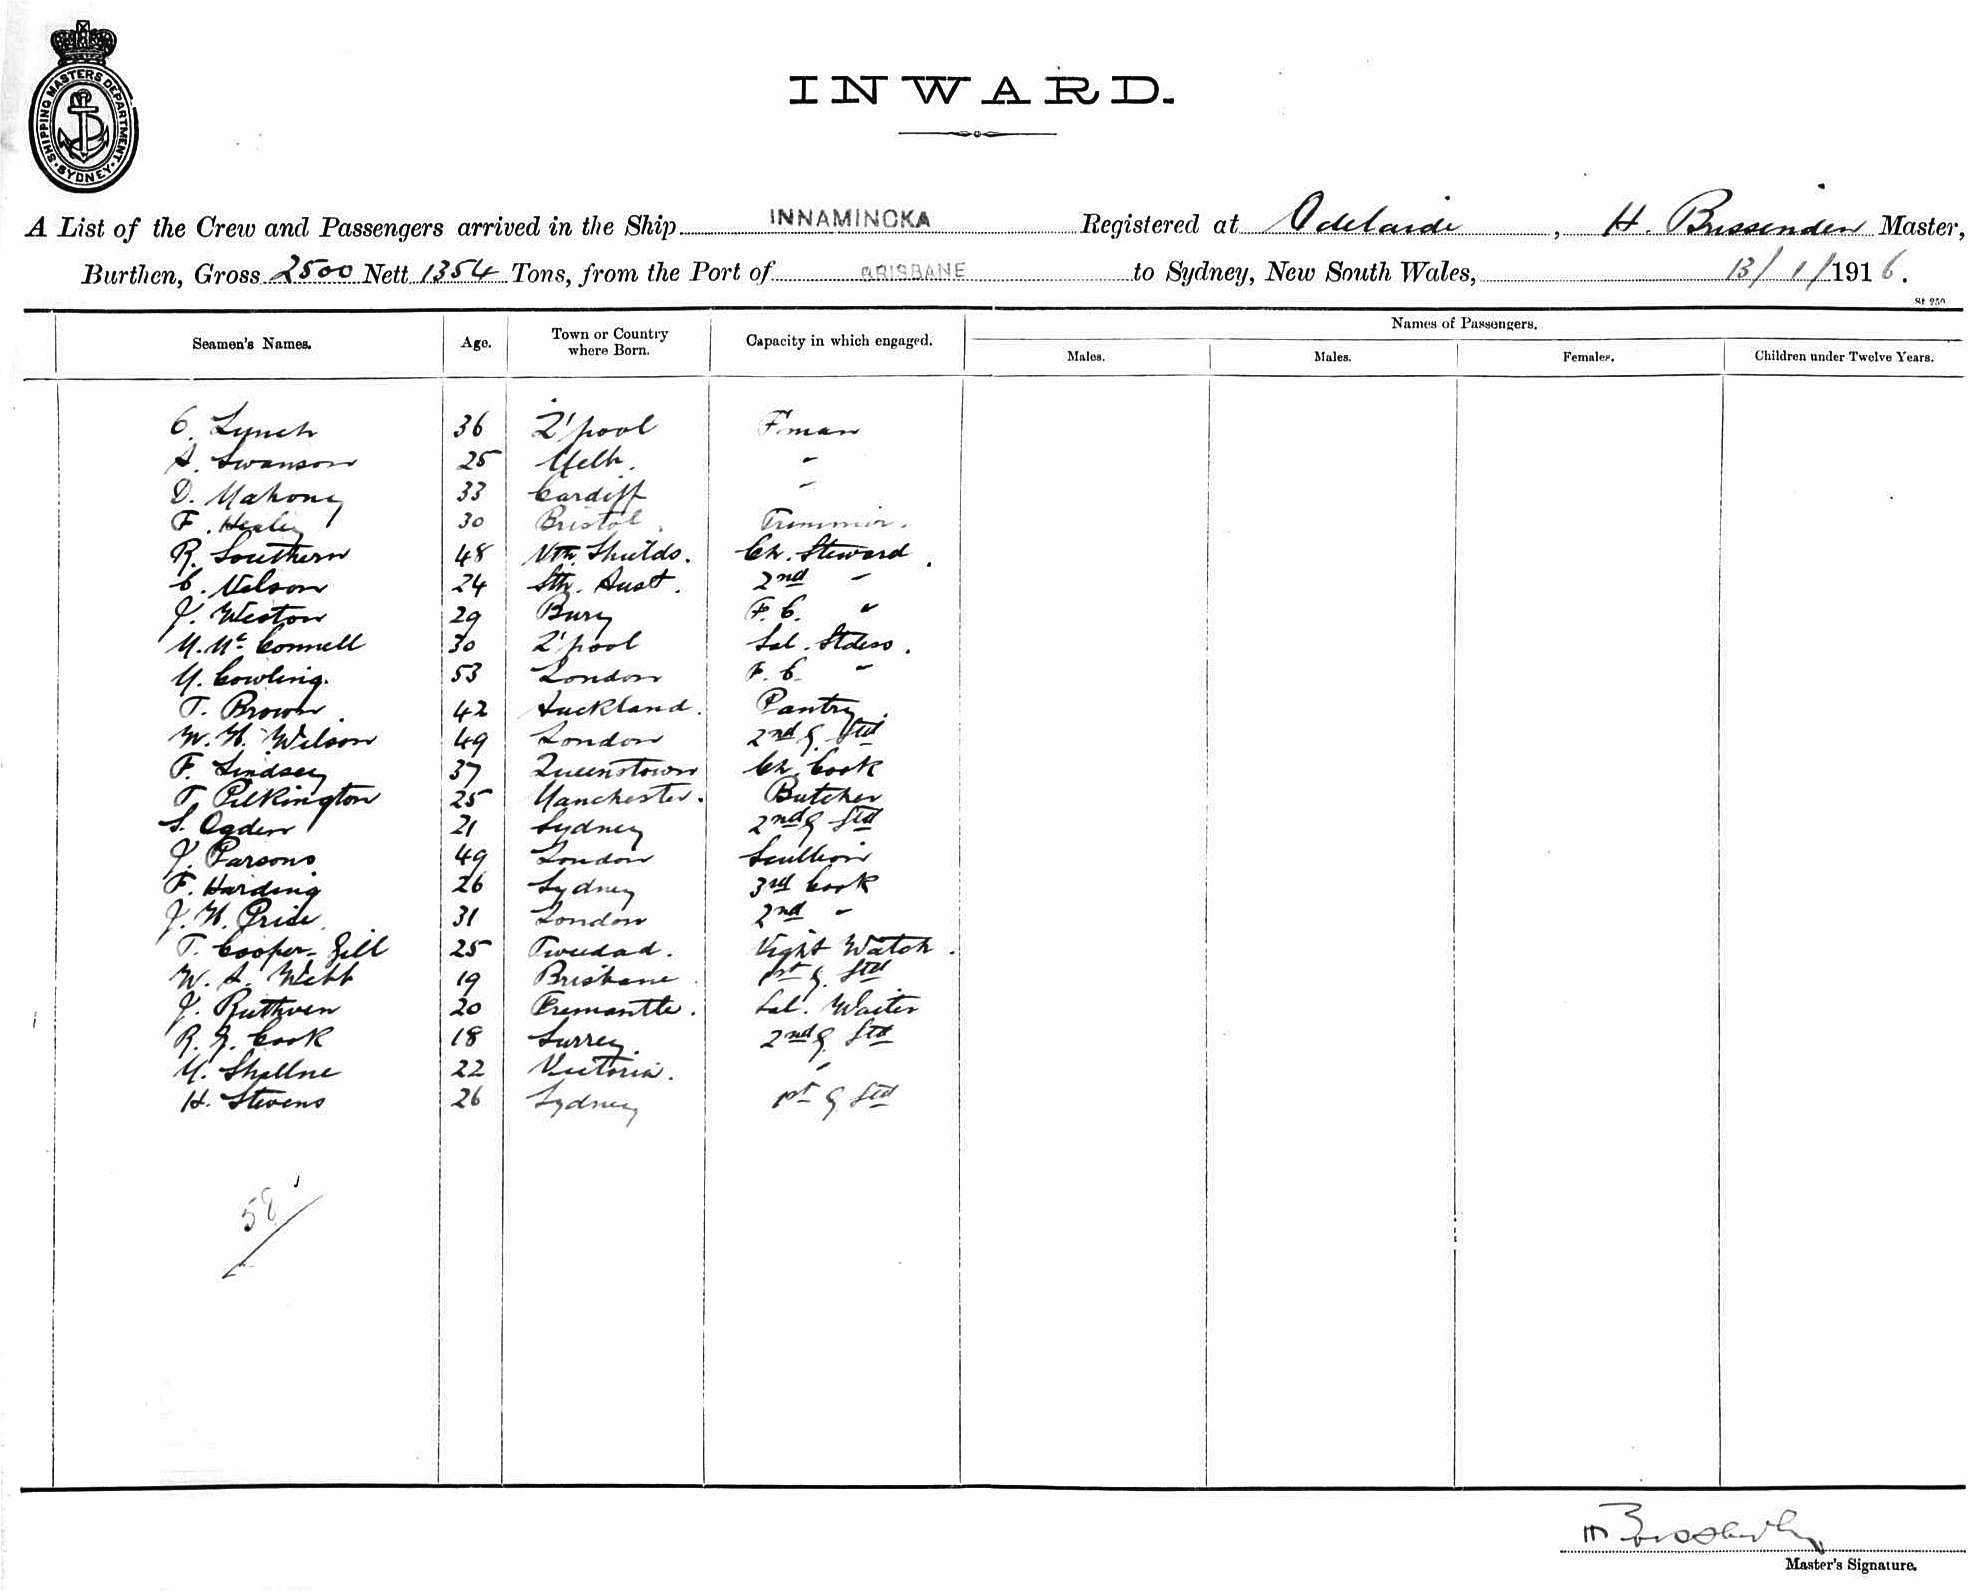 SHIPPING MASTERS DEPARTMENT
SYDNEY
INWARD.
A List of the Crew and Passengers arrived in the Ship INNAMINCKA Registered at Adelaide, H. Brissenden Master,
Burthen, Gross 2500 Nett 1354 Tons, from the Port of BRISBANE to Sydney, New South Wales, 13/1/1916.
Seamen's Names. Age. Town or Country where Born. Capacity in which engaged. Names of Passengers.
Males. Males. Females. Children under Twelve Years.
C. Lynch 36 L'pool F'man
A. Swanson 25 Melb. "
D. Mahony 33 Cardiff "
F. Healey 30 Bristol. Trimmer.
R. Southern 48 Nth. Shields. Ch. Steward.
C. Nelson 24 Sth. Aust. 2nd "
J. Weston 29 Bury F. C. "
M. McConnell 30 L'pool Sal. Stdess.
M. Cowling. 53 London F. C. "
T. Brown. 42 Auckland. Pantry.
W. H. Wilson 49 London 2nd G. Std
F. Lindsey 37 Queenstown Ch. Cook
T. Pilkington 25 Manchester. Butcher
S. Ogden 21 Sydney 2nd G Std
J. Parsons 49 London Scullion
F. Harding 26 Sydney 3rd Cook
J. H. Price. 31 London 2nd "
T. Cooper-Gill 25 Night Watch.
W. A. Webb 19 Brisbane. 1st G. Std
J. Ruthven 20 Fremantle. Sal. Waiter
R. G. Cook 18 Surrey. 2nd G. Std
M. 22 Victoria. "
H. Stevens 26 Sydney 1st G Std
58
Master's Signature.